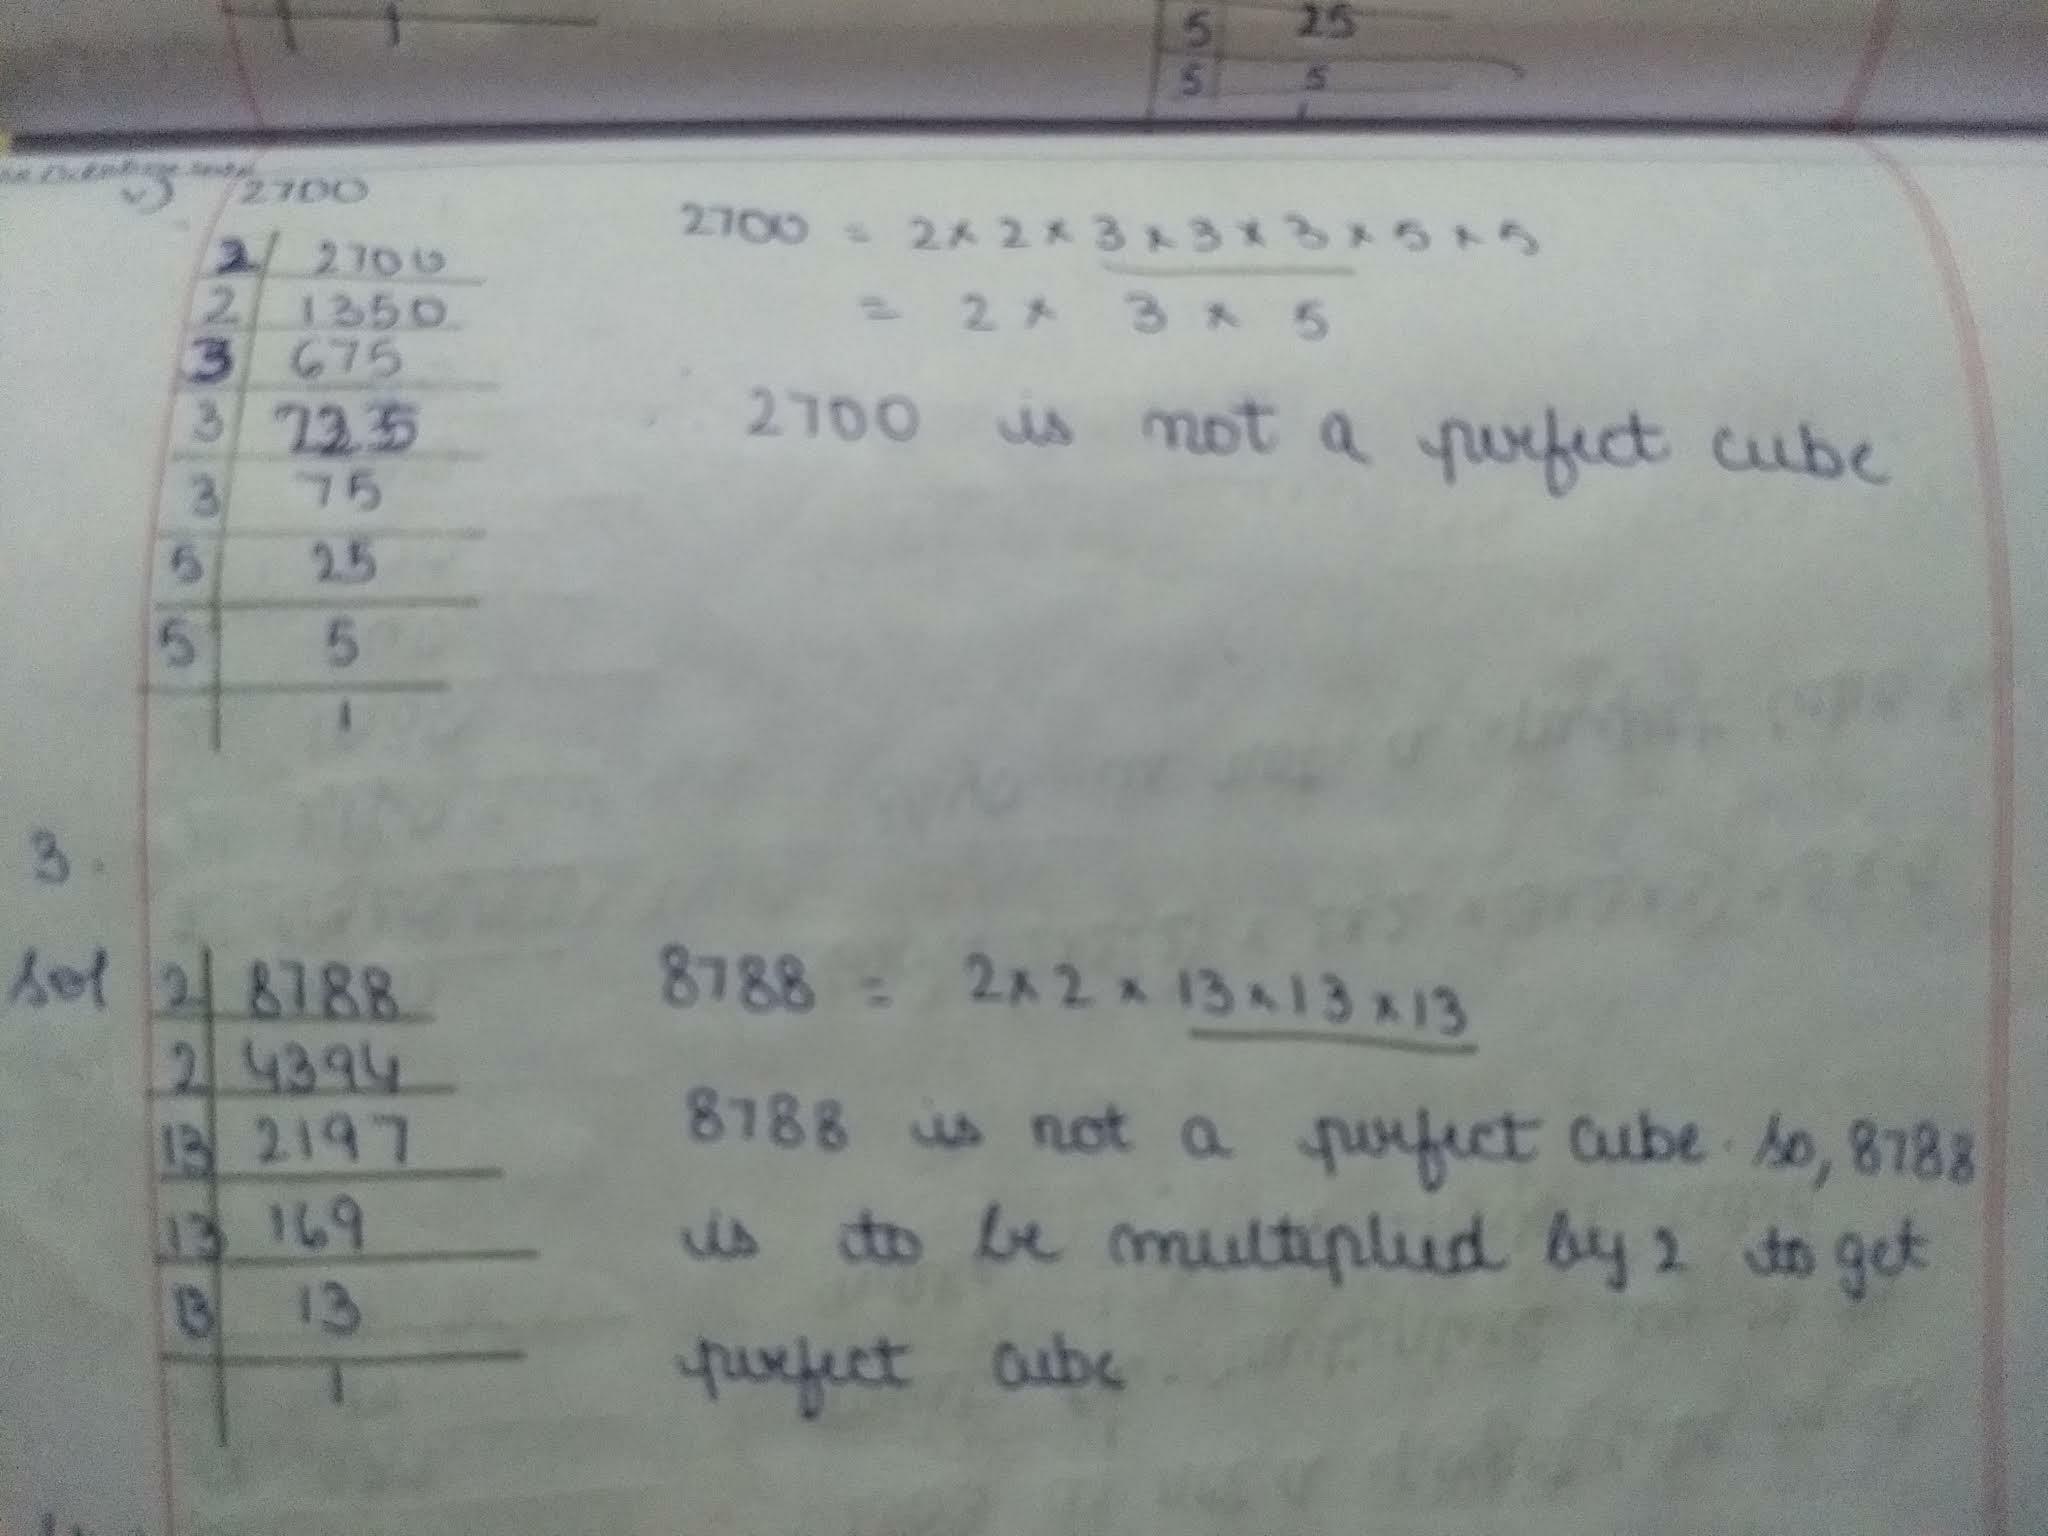 1
5 25
5 5
1
v) 2700
2 2700
2 1350
3 675
3
3 75
5 25
5 5
1
2700 = 2 × 2 × 3 × 3 × 3 × 5 × 5
= 2 × 3 × 5
2700 is not a perfect cube
3.
Sol
2 8788
2 4394
13 2197
13 169
13 13
1
8788 = 2 × 2 × 13 × 13 × 13
8788 is not a perfect cube. So, 8788
is to be multiplied by 2 to get
perfect cube